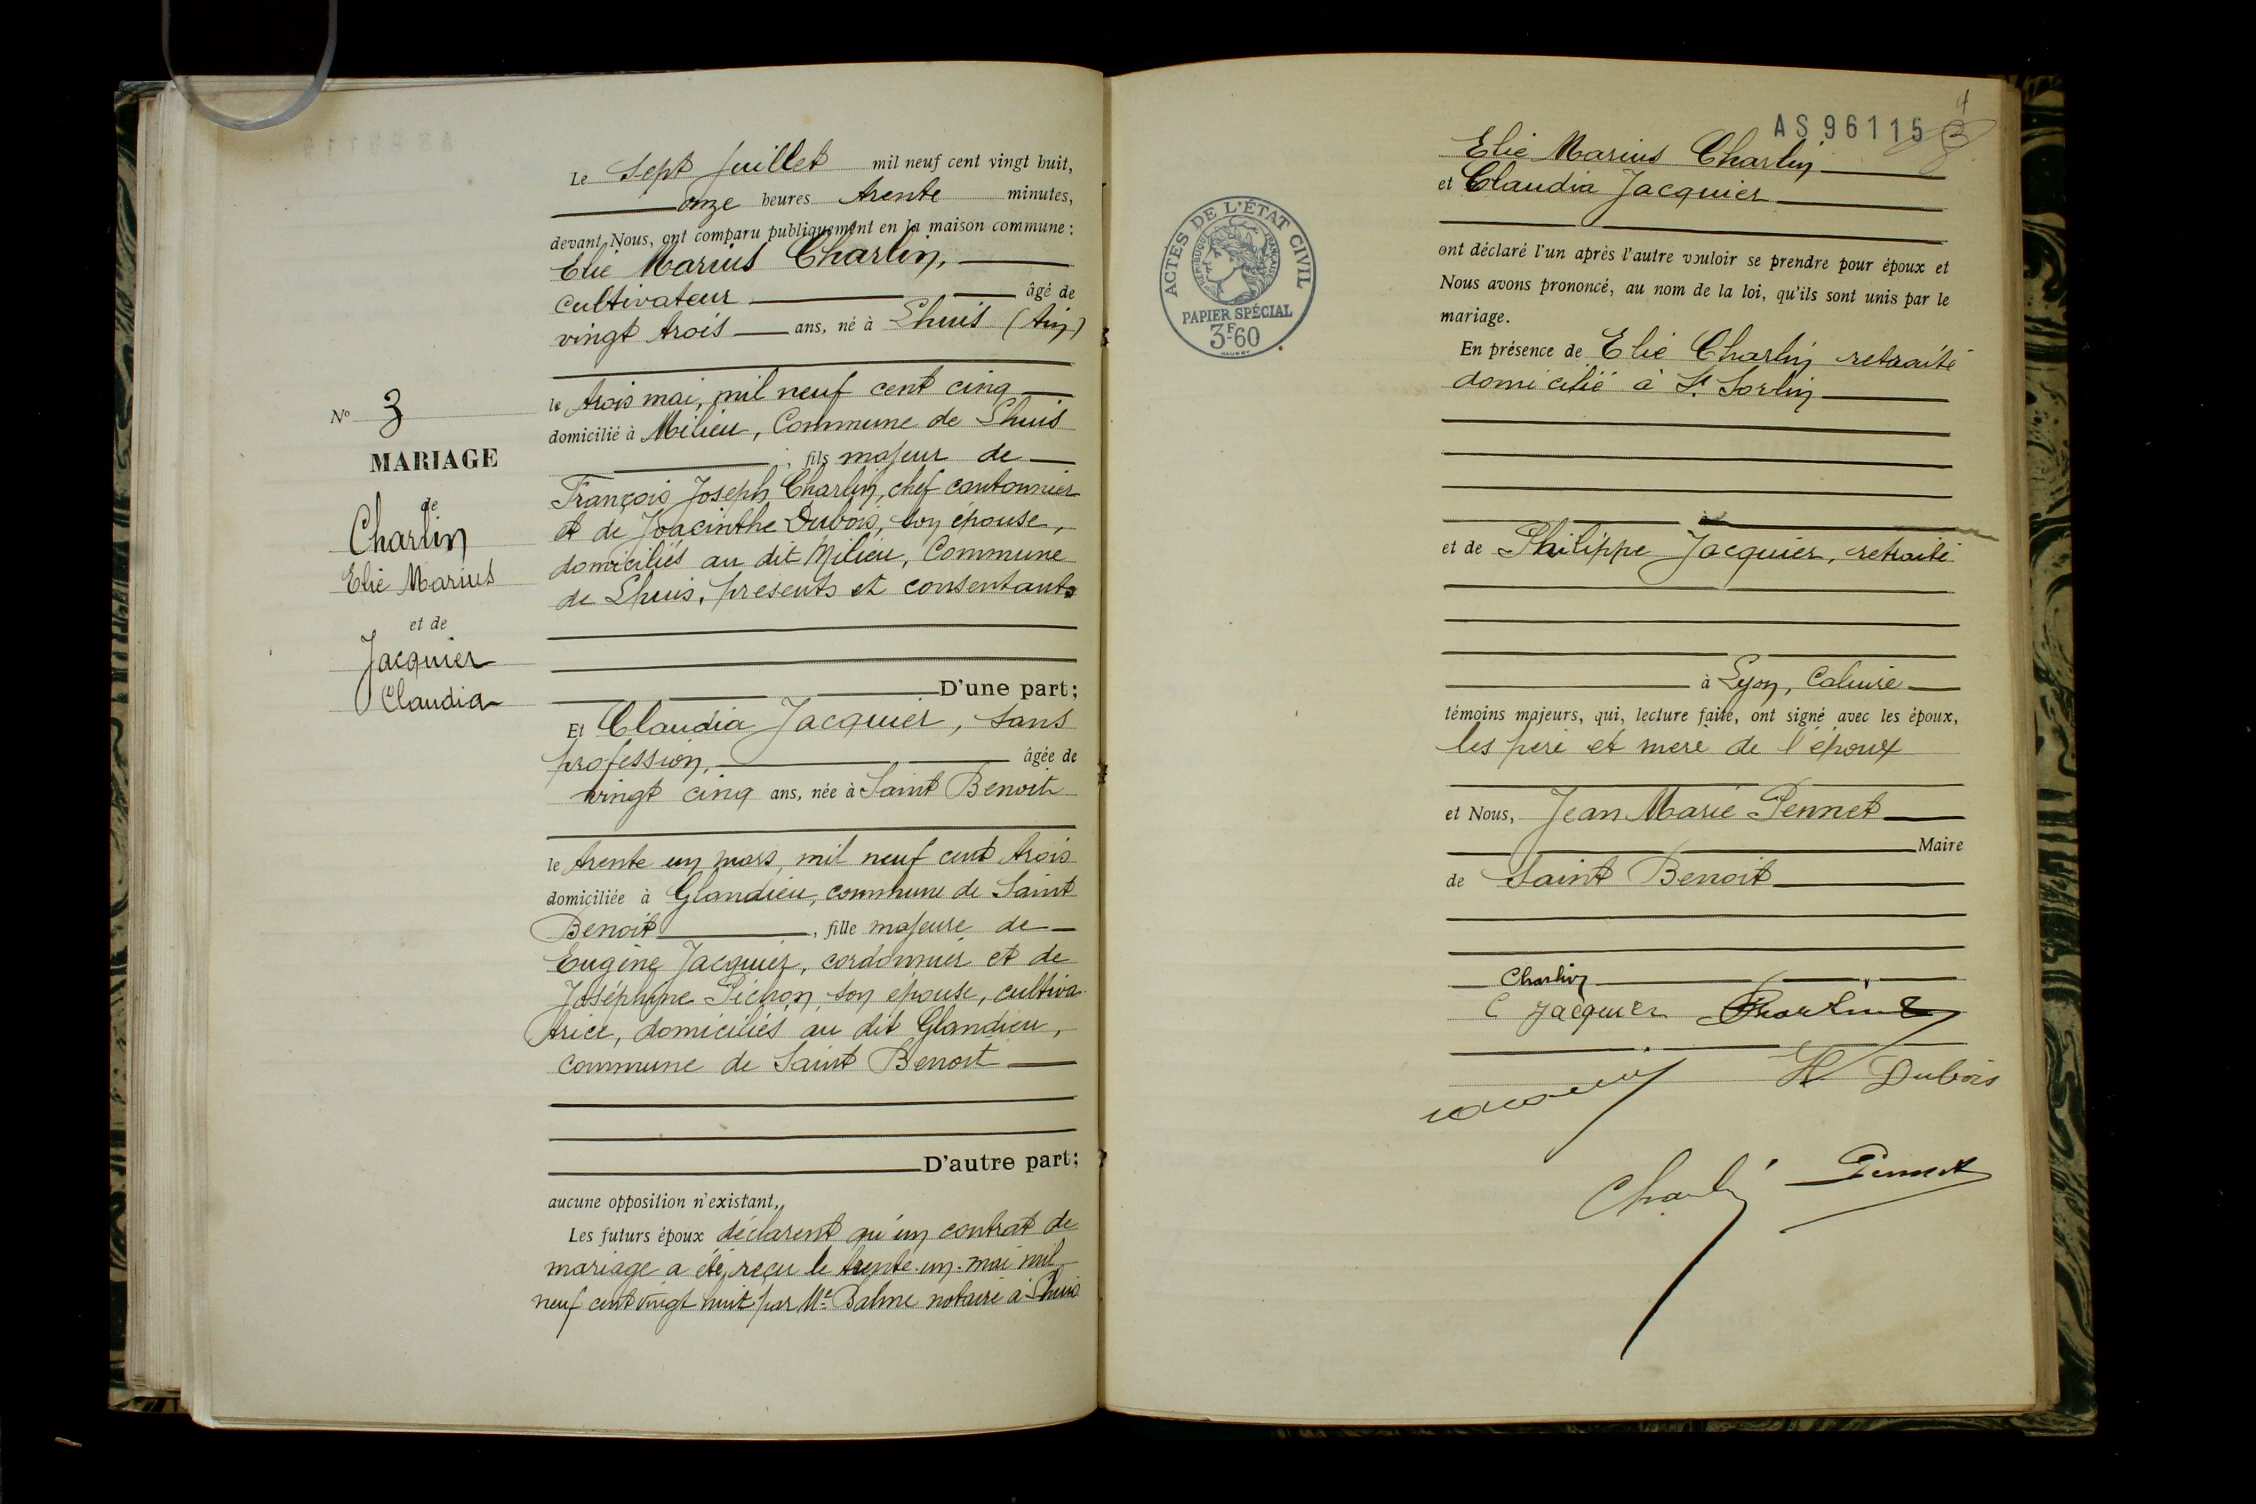 Le Sept Juillet mil neuf cent vingt huit,
onze heures trente minutes,
devant Nous, ont comparu publiquement en la maison commune :
Elie Marius Charlin,
cultivateur âgé de
vingt trois ans, né à Lhuis (Ain)
le trois mai, mil neuf cent cinq
domicilié à Milieu, Commune de Lhuis
, fils majeur de
François Joseph Charlin, chef cantonnier
et de Joacinthe Dubois, son épouse,
domiciliés au dit Milieu, Commune
de Lhuis, présents et consentants
D'une part ;
Et Claudia Jacquier, sans
profession, âgée de
vingt cinq ans, née à Saint Benoit
le trente un mars, mil neuf cent trois
domiciliée à Glandieu, commune de Saint
Benoit, fille majeure de
Eugène Jacquier, cordonnier et de
Joséphine Pichon son épouse, cultiva
trice, domiciliés au dit Glandieu,
commune de Saint Benoit
D'autre part ;
aucune opposition n'existant.
Les futurs époux déclarent qu'un contrat de
mariage a été reçu le trente-un-mai mil
neuf cent vingt huit par Me Balme notaire à Lhuis
N° 3
MARIAGE
de
Charlin
Elie Marius
et de
Jacquier
Claudia
4
AS 96115
3
Elie Marius Charlin
et Claudia Jacquier
ont déclaré l'un après l'autre vouloir se prendre pour époux et
Nous avons prononcé, au nom de la loi, qu'ils sont unis par le
mariage.
En présence de Elie Charlin retraité
domicilié à St Sorlin
et de Philippe Jacquier, retraité
à Lyon, Caluire
témoins majeurs, qui, lecture faite, ont signé avec les époux,
les père et mère de l'époux
et Nous, Jean Marie Pennet
Maire
de Saint Benoit
Charlin
C Jacquier Charlin E
H Dubois
Charlin Pennet
ACTES DE L'ÉTAT CIVIL
RÉPUBLIQUE FRANÇAISE
PAPIER SPÉCIAL
3F60